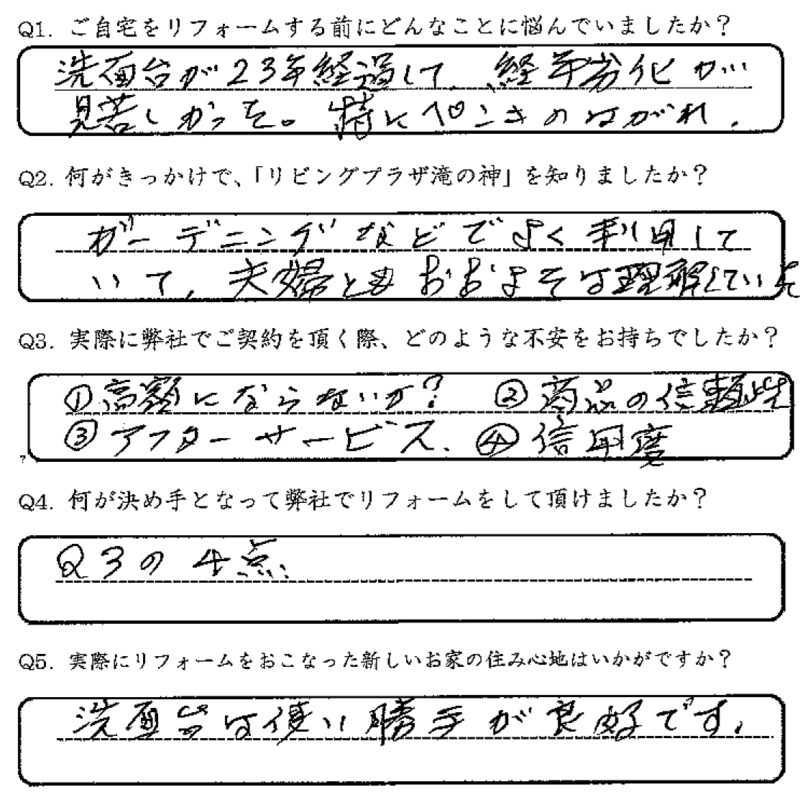 Q1. ご自宅をリフォームする前にどんなことに悩んでいましたか？
洗面台が23年経過して、経年劣化が
見苦しかった。特にペンキのはがれ。
Q2. 何がきっかけで、「リビングプラザ滝の神」を知りましたか？
ガーデニングなどでよく利用して
いて、夫婦ともおおよそは理解していた
Q3. 実際に弊社でご契約を頂く際、どのような不安をお持ちでしたか？
①高額にならないか？ ②商品の信頼性
③アフターサービス、④信用度
Q4. 何が決め手となって弊社でリフォームをして頂けましたか？
Q3の4点、
Q5. 実際にリフォームをおこなった新しいお家の住み心地はいかがですか？
洗面台は使い勝手が良好です。